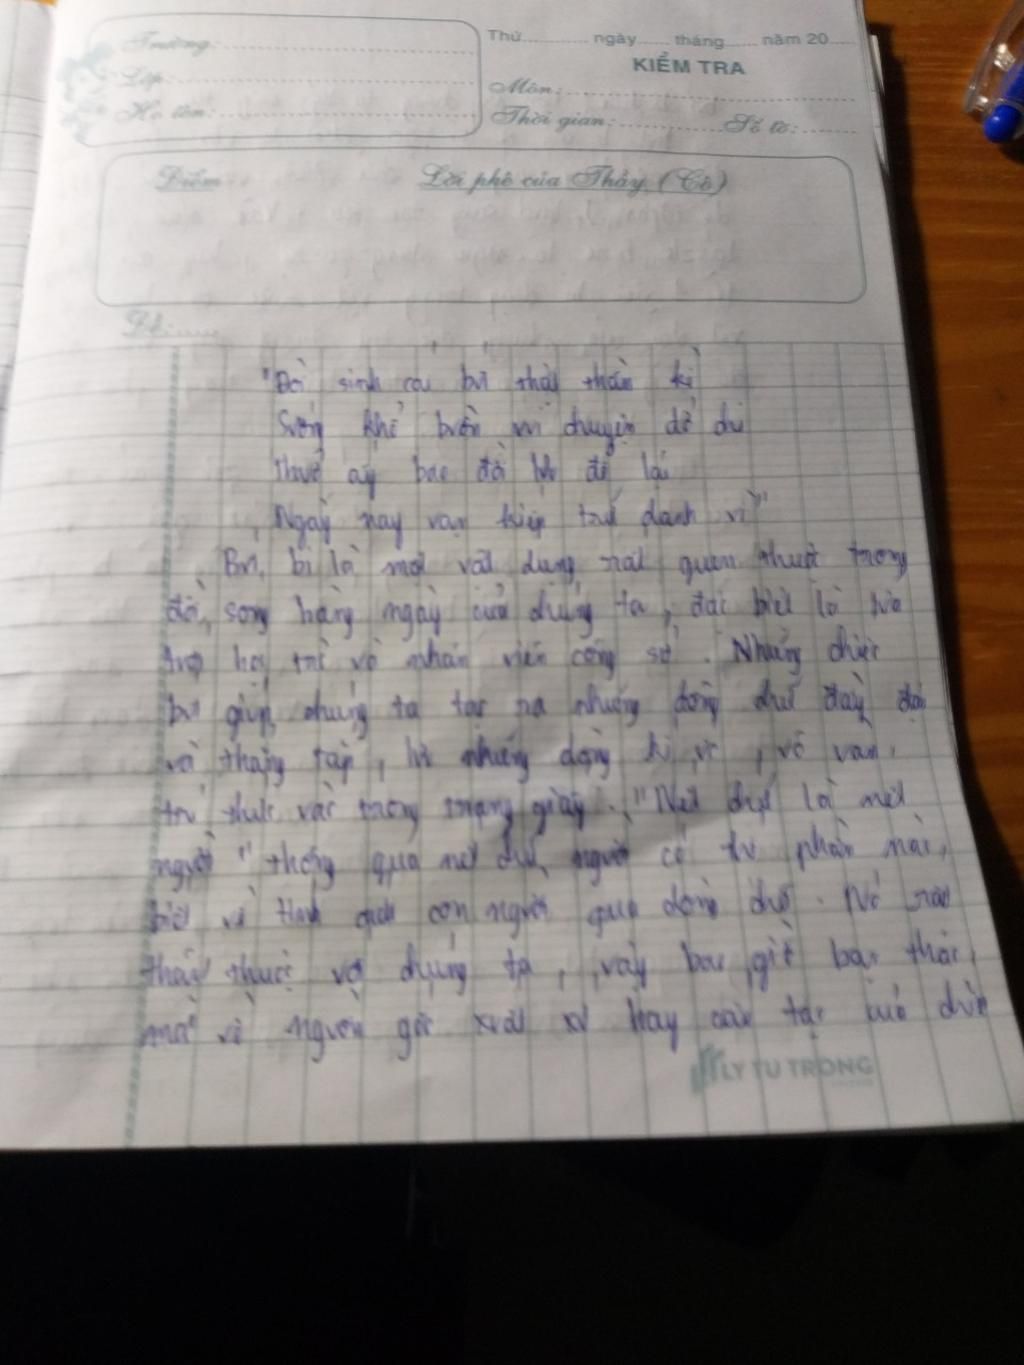 Trường:
Lớp:
Họ tên:
Thứ ngày tháng năm 20
KIỂM TRA
Môn:
Thời gian: Số tờ:
Điểm Lời phê của Thầy (Cô)
Đề:
sinh ra bút thật thần kì
Sướng khổ
ấy bao đời để lại
Ngày nay vạn kiếp danh vì"
Bút bi là một vật dụng rất quen thuộc trong
đời sống hàng ngày của chúng ta, đặc biệt là
học trò và nhân viên công sở. Những chiếc
bút giúp chúng ta tạo ra những dòng chữ đầy
và thẳng tắp, những dòng, vô vàn
tri thức trong trang giấy. "Nét chữ là nết
người" thông qua nét chữ, người có phần nào
biết về tính cách con người qua dòng chữ. Nó
thân thuộc với chúng ta, vậy bao giờ bạn thắc
mắc về nguồn gốc xuất xứ hay cấu tạo của
LY TU TRONG